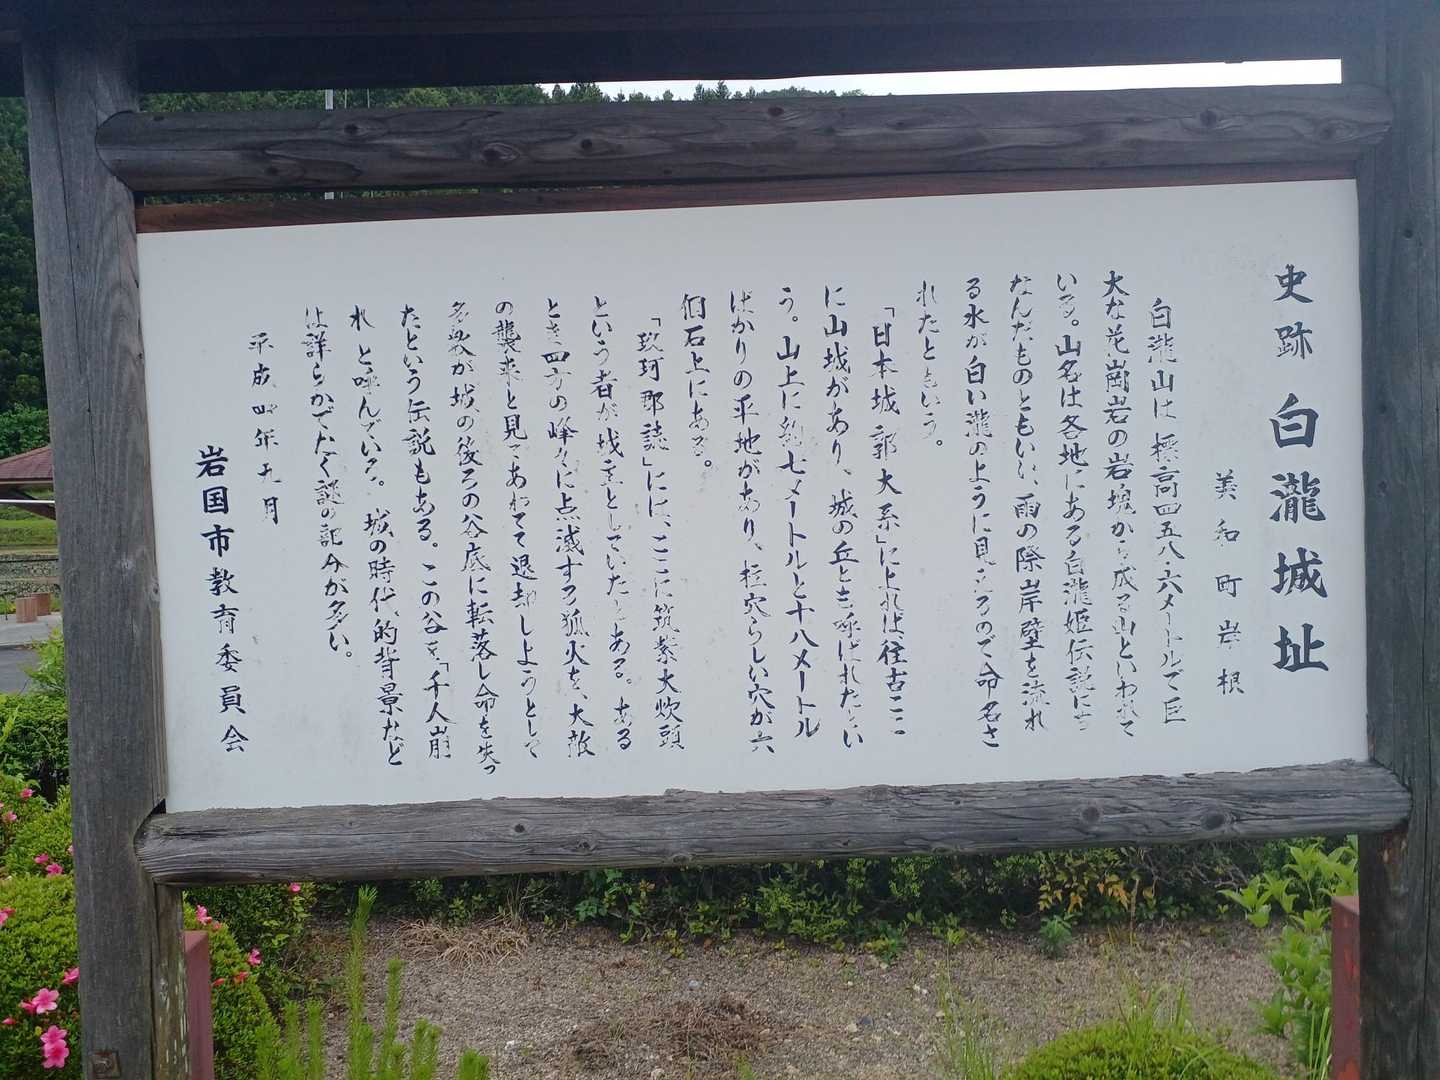 史跡 白瀧城址
美和町岸根
白瀧山は標高四五八・六メートルで巨
大な花崗岩の岩塊から成る山といわれて
いる。山名は各地にある白瀧姫伝説にち
なんだものともいい、雨の際岸壁を流れ
る水が白い瀧のように見えるので命名さ
れたともいう。
「日本城郭大系」によれば往古ここ
に山城があり、城の丘とも呼ばれたとい
う。山上に約七メートルと十八メートル
ばかりの平地があり、柱穴らしい穴が六
個石上にある。
「玖珂郡誌」には、ここに筑紫大炊頭
という者が城主としていたとある。ある
とき四方の峰々に点滅する狐火を、大敵
の襲来と見てあわてて退却しようとして
多数が城の後ろの谷底に転落し命を失っ
たという伝説もある。この谷を「千人崩
れ」と呼んでいる。城の時代的背景など
は詳らかでなく謎の部分が多い。
平成四年九月
岩国市教育委員会